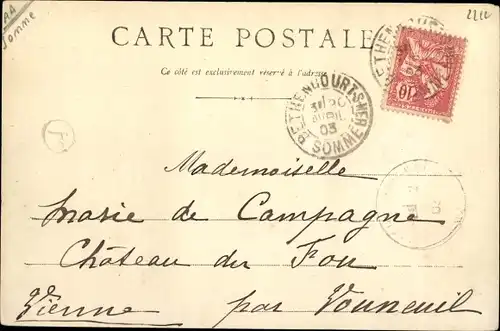 Somme
CARTE POSTALE
Ce côté est exclusivement réservé à l'adresse
BETHENCOURT-S-MER
AVRIL
03
SOMME
10
Mademoiselle
Marie de Campagne
Château du Fou
Vienne par Vouneuil